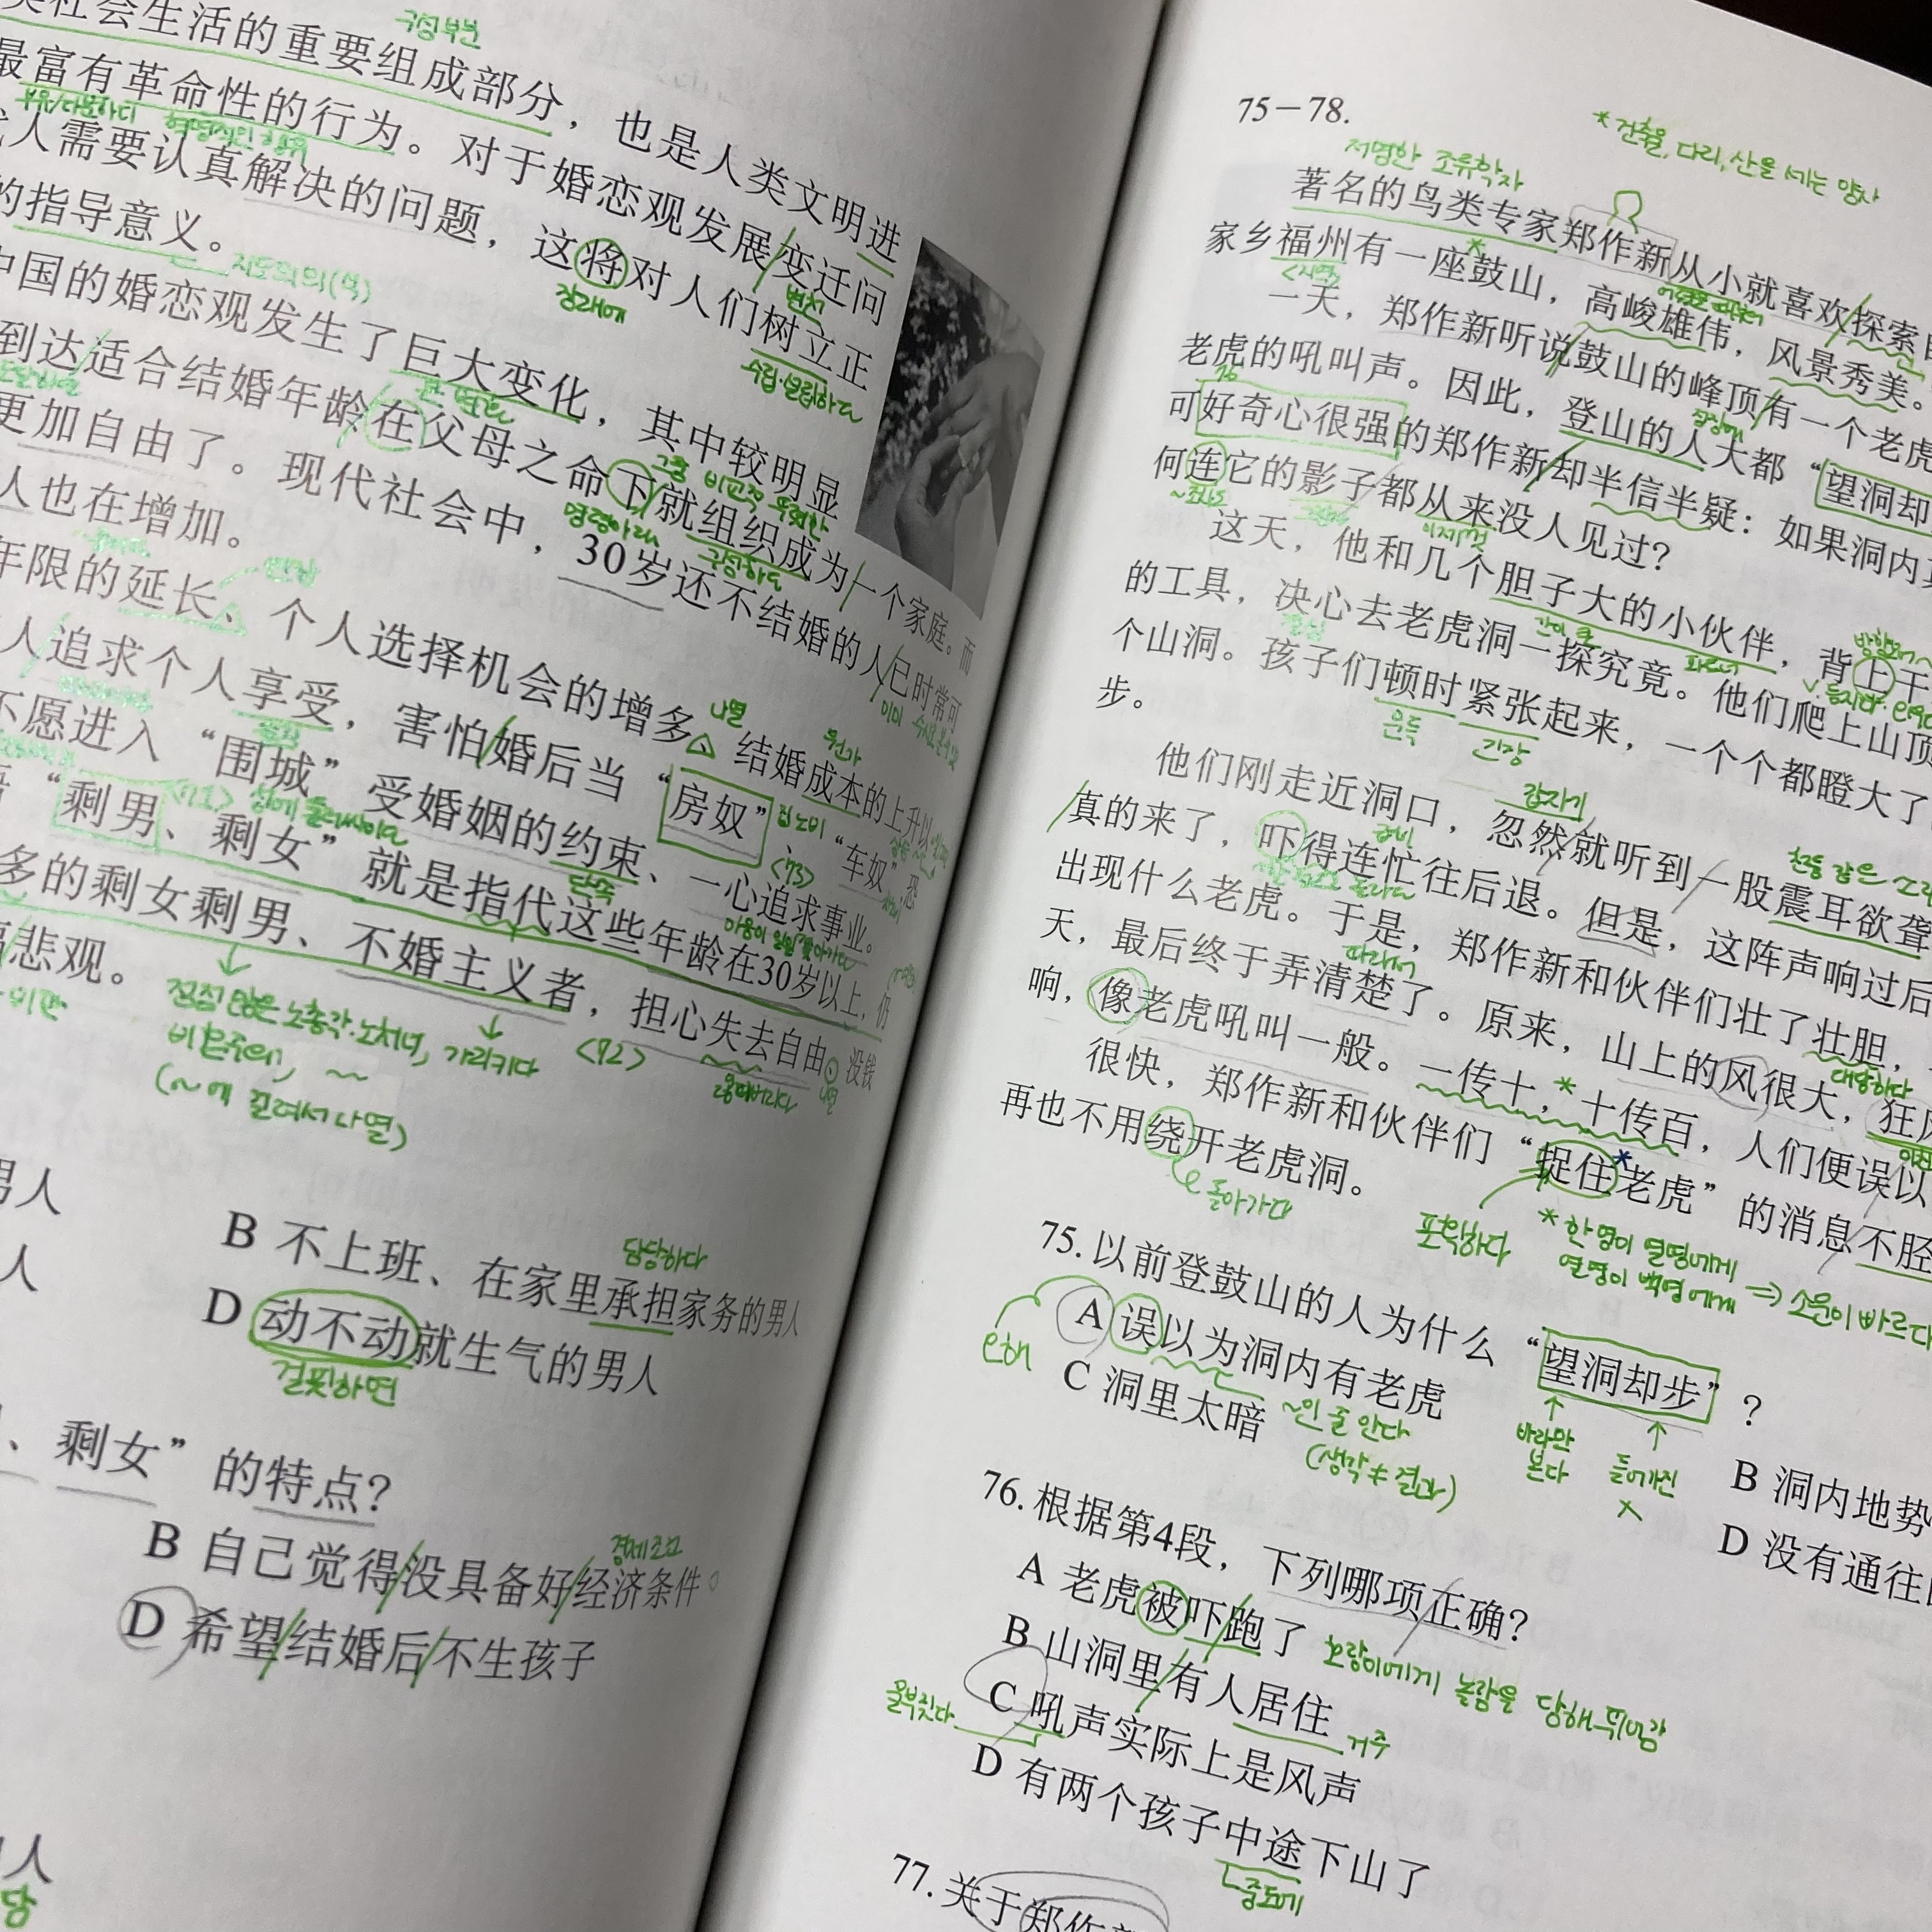 类社会生活的重要组成部分，也是人类文明进
구성 부분
最富有革命性的行为。对于婚恋观发展变迁问
부유/다분하다 혁명적인 행위
人需要认真解决的问题，这将对人们树立正
장래에
변천
수립·설립하다
的指导意义。
지도적 의의(역)
中国的婚恋观发生了巨大变化，其中较明显
큰 변화
그중 비교적 뚜렷한
到达适合结婚年龄在父母之命下就组织成为一个家庭。而
명령아래
구성하다
更加自由了。现代社会中，30岁还不结婚的人已时常可
이미
人也在增加。
年限的延长、个人选择机会的增多、结婚成本的上升以
연장
나열
원가
人追求个人享受，害怕婚后当“房奴”、“车奴”，恐
집 노비
<73>
不愿进入“围城”受婚姻的约束、一心追求事业。
단속
“剩男、剩女”就是指代这些年龄在30岁以上，仍
<71>
多的剩女剩男、不婚主义者，担心失去自由、没钱
悲观。
점점 많은 노총각·노처녀, 가리키다
<72>
비혼주의, ~~
(~에 걸려서 나열)
잃어버리다
나열
男人
B 不上班、在家里承担家务的男人
담당하다
人
D 动不动就生气的男人
걸핏하면
、剩女”的特点？
B 自己觉得没具备好经济条件。
경제 조건
D 希望结婚后不生孩子
人
당
75－78.
* 건축물, 다리, 산을 세는 양사
저명한 조류학자
著名的鸟类专家郑作新从小就喜欢探索
家乡福州有一座鼓山，高峻雄伟，风景秀美。
<지역>
一天，郑作新听说鼓山的峰顶有一个老虎
老虎的吼叫声。因此，登山的人大都“望洞却
可好奇心很强的郑作新却半信半疑：如果洞内真
何连它的影子都从来没人见过？
~조차도
이제껏
这天，他和几个胆子大的小伙伴，背上干
간이 큰
파트너
的工具，决心去老虎洞一探究竟。他们爬上山顶
결심
个山洞。孩子们顿时紧张起来，一个个都瞪大了
문득
긴장
步。
他们刚走近洞口，忽然就听到一股震耳欲聋
갑자기
천둥 같은 소리
真的来了，吓得连忙往后退。但是，这阵声响过后
出现什么老虎。于是，郑作新和伙伴们壮了壮胆，
따라서
대담하다
天，最后终于弄清楚了。原来，山上的风很大，狂风
响，像老虎吼叫一般。一传十，十传百，人们便误以
很快，郑作新和伙伴们“捉住老虎”的消息不胫
포획하다
再也不用绕开老虎洞。
돌아가다
* 한 명이 열명에게
열명이 백명에게 ⇒ 소문이 빠르다
75. 以前登鼓山的人为什么“望洞却步”？
바라만 본다
들어가진 X
A 误以为洞内有老虎
오해
~인 줄 안다
(생각≠결과)
B 洞内地势
C 洞里太暗
D 没有通往
76. 根据第4段，下列哪项正确？
A 老虎被吓跑了
호랑이에게 놀람을 당해 뛰어감
B 山洞里有人居住
거주
C 吼声实际上是风声
울부짖다
D 有两个孩子中途下山了
중도에
77. 关于郑作新